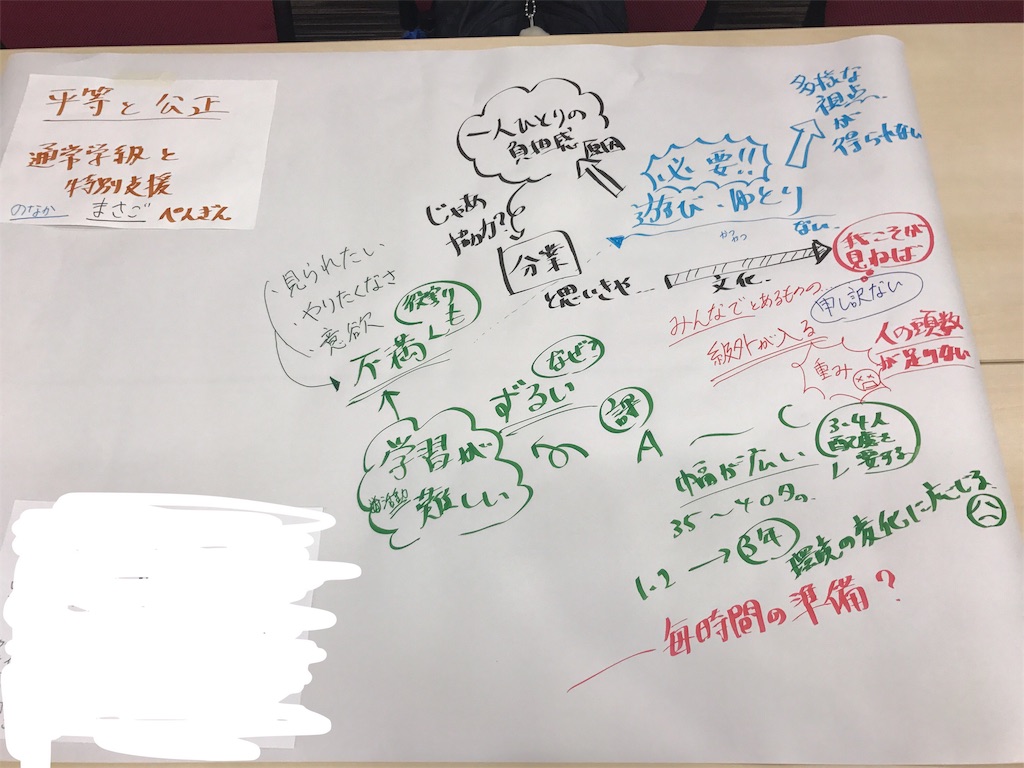 平等と公正
通常学級と
特別支援
のなか まさご ぺんぎん
一人ひとりの
負担感
原因
じゃあ
協力?
分業
と思いきや…
必要!!
遊び・ゆとり
ない
かつかつ
多様な
視点
が
得られない
文化…
我こそが
見ねば
申し訳ない
みんなでとあるものの…
級外が入る
重み
人の頭数
が足りない
・見られたい
・やりたくなさ
・意欲
不満
役割り
も
ずるい
なぜ?
学習が
難しい
評
A 〜 C
幅が広い
3.4人
配慮を
要する
35〜40名の
1.2→3年
環境の変化に応じる
毎時間の準備?